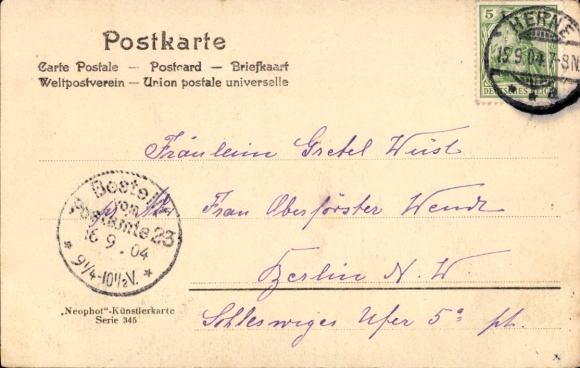 Postkarte
Carte Postale — Postcard — Briefkaart
Weltpostverein — Union postale universelle
5
DEUTSCHES REICH
HERNE
15.9.04.7-8N.
Fräulein Gretel Wüst
Frau Oberförster Wendt
Berlin N. W
Schleswiger Ufer 5a pt.
Bestellt
vom
Postamte 23
16.9.04
9 1/4-10 1/2 V.
„Neophot"-Künstlerkarte
Serie 345